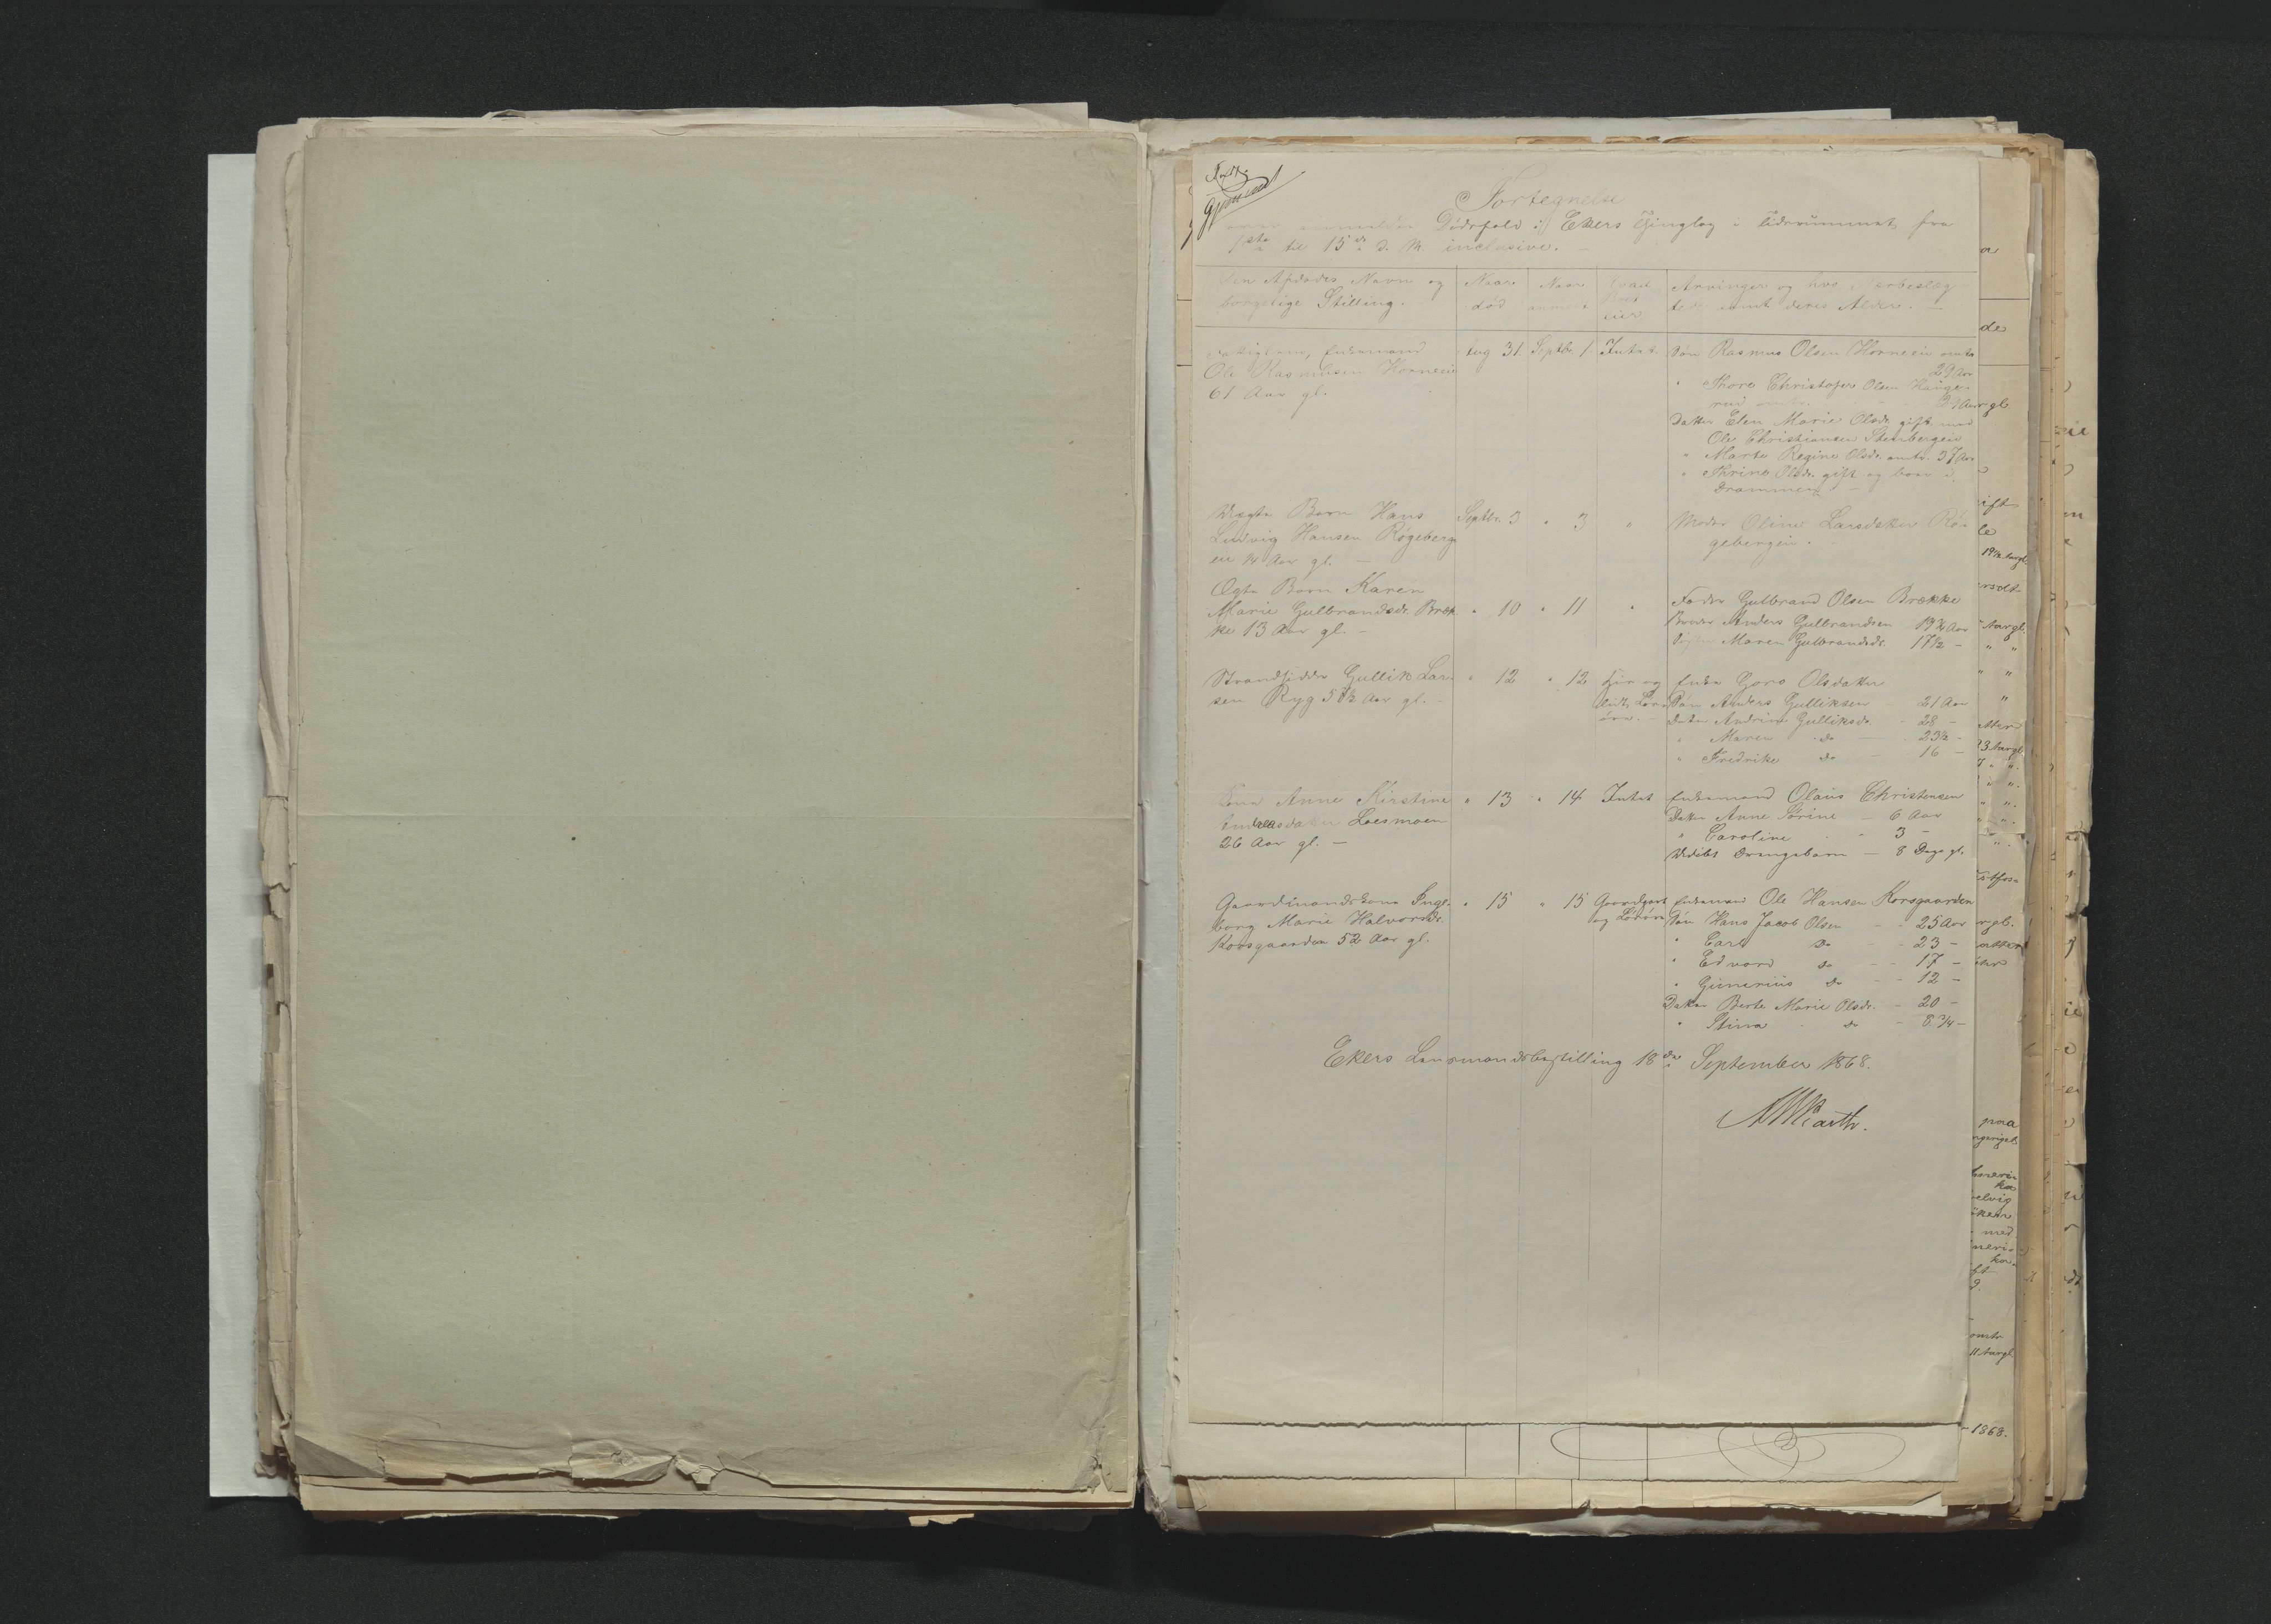 Fortegnelse
over anmeldte Dødsfald i Ekers Thinglag i Tidsrummet fra
1ste til 15de d. M. inclusive.
den Afdødes Navn og
borgerlige Stilling.
Naar
død
Naar
anmeldt
Hvad
Boet
eier
Arvinger og hvor nærbeslæg-
tede samt deres Alder.
Fattiglem, Enkemand
Ole Rasmussen Horneie
61 Aar gl.
Aug 31.
Septbr. 1
Intet.
Søn Rasmus Olsen Horneie omtr.
29 Aar
" Thore Christofer Olsen Hauge-
rud
Aar gl.
Datter Elen Marie Olsdr. gift med
Ole Christiansen Stenbergen
" Marte Regine Olsdr. omtr. 37 Aar
" Thrine Olsdr. gift og boer i
Drammen
Uægte Barn Hans
Ludvig Hansen Røgeberg-
en ¼ Aar gl. —
Septbr. 3
" 3
"
Moder Oline Larsdatter Rø-
gebergen. -
Ægte Barn Karen
Marie Gulbrandsdr. Bræk-
ke 13 Aar gl. -
" 10
" 11
"
Fader Gulbrand Olsen Brække
Broder Anders Gulbrandsen 19½ Aar
Søster Maren Gulbrandsdr. 17½ -
Strandsidder Gullik Lar-
sen Ryg 57½ Aar gl. -
" 12
" 12
Huus og
lidt Løs-
øre. -
Enke Goro Olsdatter
Søn Anders Gulliksen - 21 Aar
Datter Andrine Gulliksdr. - 28 -
" Maren do - 23½ -
" Fredrike do - 16 -
Kone Anne Kirstine
Andreasdatter Loesmoen
26 Aar gl. —
" 13
" 14
Intet
Enkemand Olaus Christensen
Datter Anne Sørine - 6 Aar
" Caroline - 3 -
Udøbt Drengebarn - 8 Dage gl.
Gaardmandskone Inge-
borg Marie Halvorsdr.
Korsgaarden 52 Aar gl.
" 15
" 15
Gaardpart
og Løsøre
Enkemand Ole Hansen Korsgaarden
Søn Hans Jacob Olsen - 25 Aar
" Carl do - 23 -
" Edvard do - 17 -
" Gunerius do - 12 -
Datter Berte Marie Olsdr. - 20 -
" Stina do - 8 ¾ -
Ekers Lensmandsbestilling 18de September 1868.